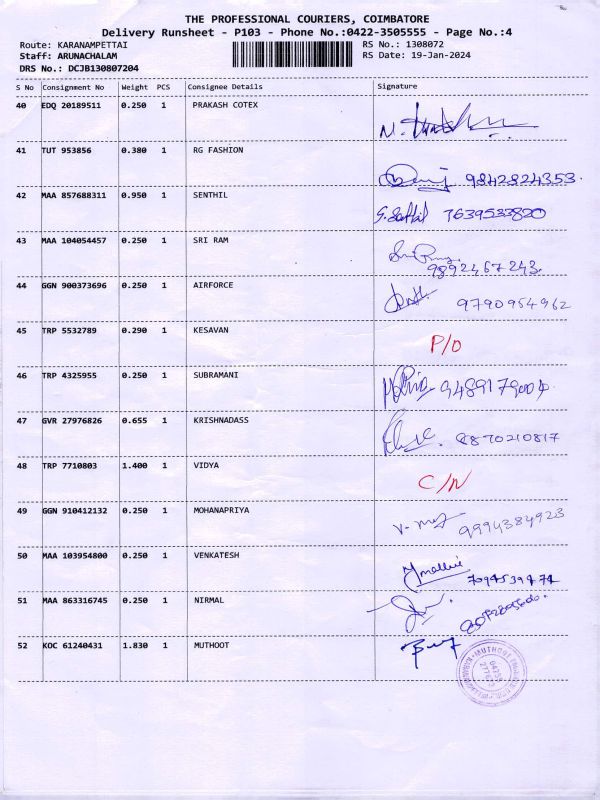 THE PROFESSIONAL COURIERS, COIMBATORE
Delivery Runsheet - P103 - Phone No.:0422-3505555 - Page No.:4
Route: KARANAMPETTAI RS No.: 1308072
Staff: ARUNACHALAM RS Date: 19-Jan-2024
DRS No.: DCJB130807204
S No Consignment No Weight PCS Consignee Details Signature
40 EDQ 20189511 0.250 1 PRAKASH COTEX
41 TUT 953856 0.380 1 RG FASHION
9842824353.
42 MAA 857688311 0.950 1 SENTHIL
7639533820
43 MAA 104054457 0.250 1 SRI RAM
9892467243.
44 GGN 900373696 0.250 1 AIRFORCE
9790954962
45 TRP 5532789 0.290 1 KESAVAN
P/O
46 TRP 4325955 0.250 1 SUBRAMANI
47 GVR 27976826 0.655 1 KRISHNADASS
8870210817
48 TRP 7710803 1.400 1 VIDYA
C/N
49 GGN 910412132 0.250 1 MOHANAPRIYA
9994384923
50 MAA 103954800 0.250 1 VENKATESH
51 MAA 863316745 0.250 1 NIRMAL
52 KOC 61240431 1.830 1 MUTHOOT